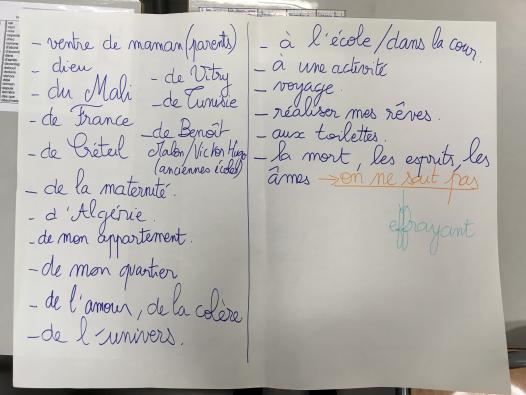 - ventre de maman (parents)
- dieu
- du Mali
- de France
- de Créteil
- de Vitry
- de Tunisie
- de Benoît
Malon/Victor Hugo
(anciennes écoles)
- de la maternité.
- d'Algérie.
- de mon appartement.
- de mon quartier
- de l'amour, de la colère
- de l'univers.
- à l'école/dans la cour.
- à une activité
- voyage.
- réaliser mes rêves.
- aux toilettes.
- la mort, les esprits, les
âmes → on ne sait pas
effrayant